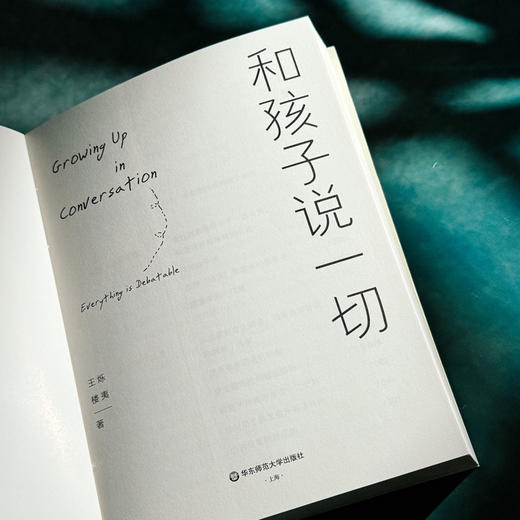 和孩子说一切
Growing Up
in
Conversation
Everything is Debatable
王烁
楼夷
著
华东师范大学出版社
·上海·